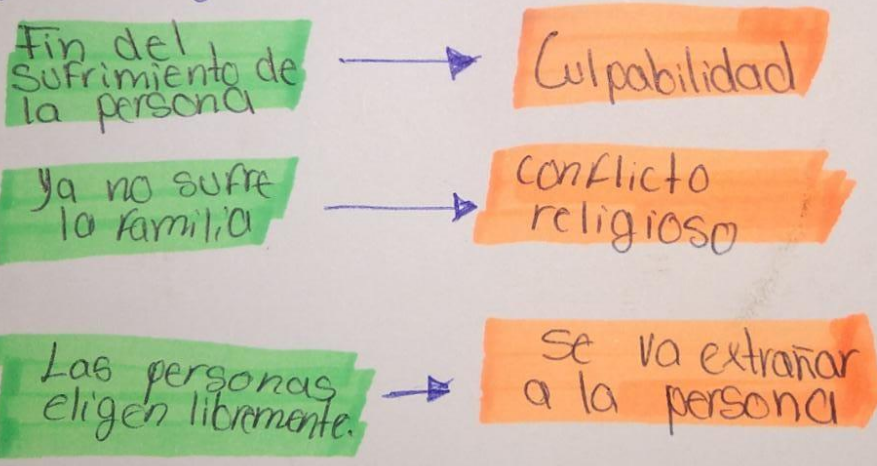 Fin del
sufrimiento de
la persona
Culpabilidad
Ya no sufre
la familia
conflicto
religioso
Las personas
eligen libremente.
Se va extrañar
a la persona